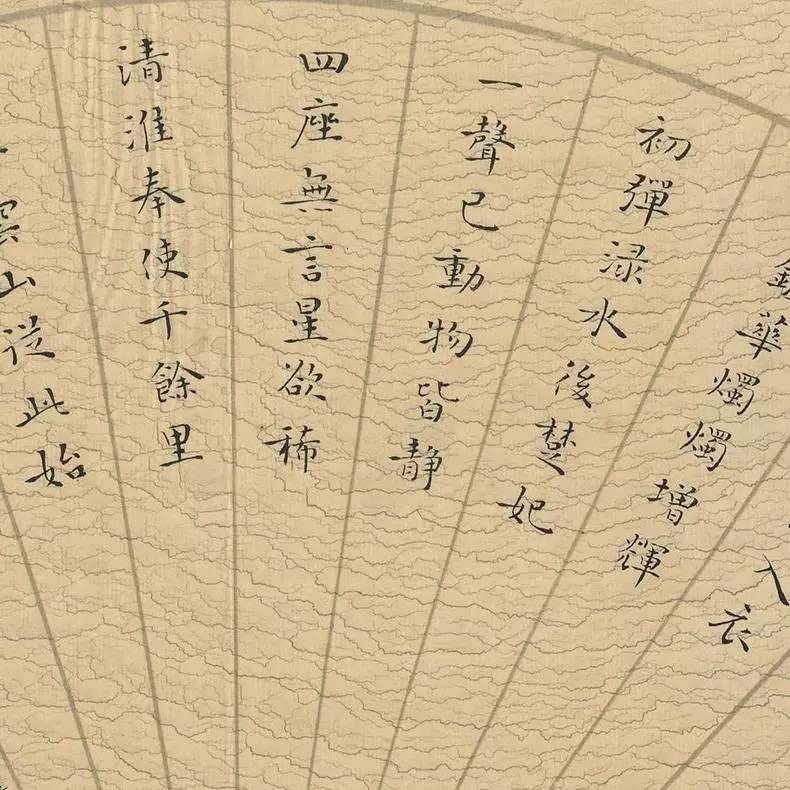 入衣
華燭燭增輝
初彈渌水後楚妃
一聲已動物皆静
四座無言星欲稀
清淮奉使千餘里
雲山從此始